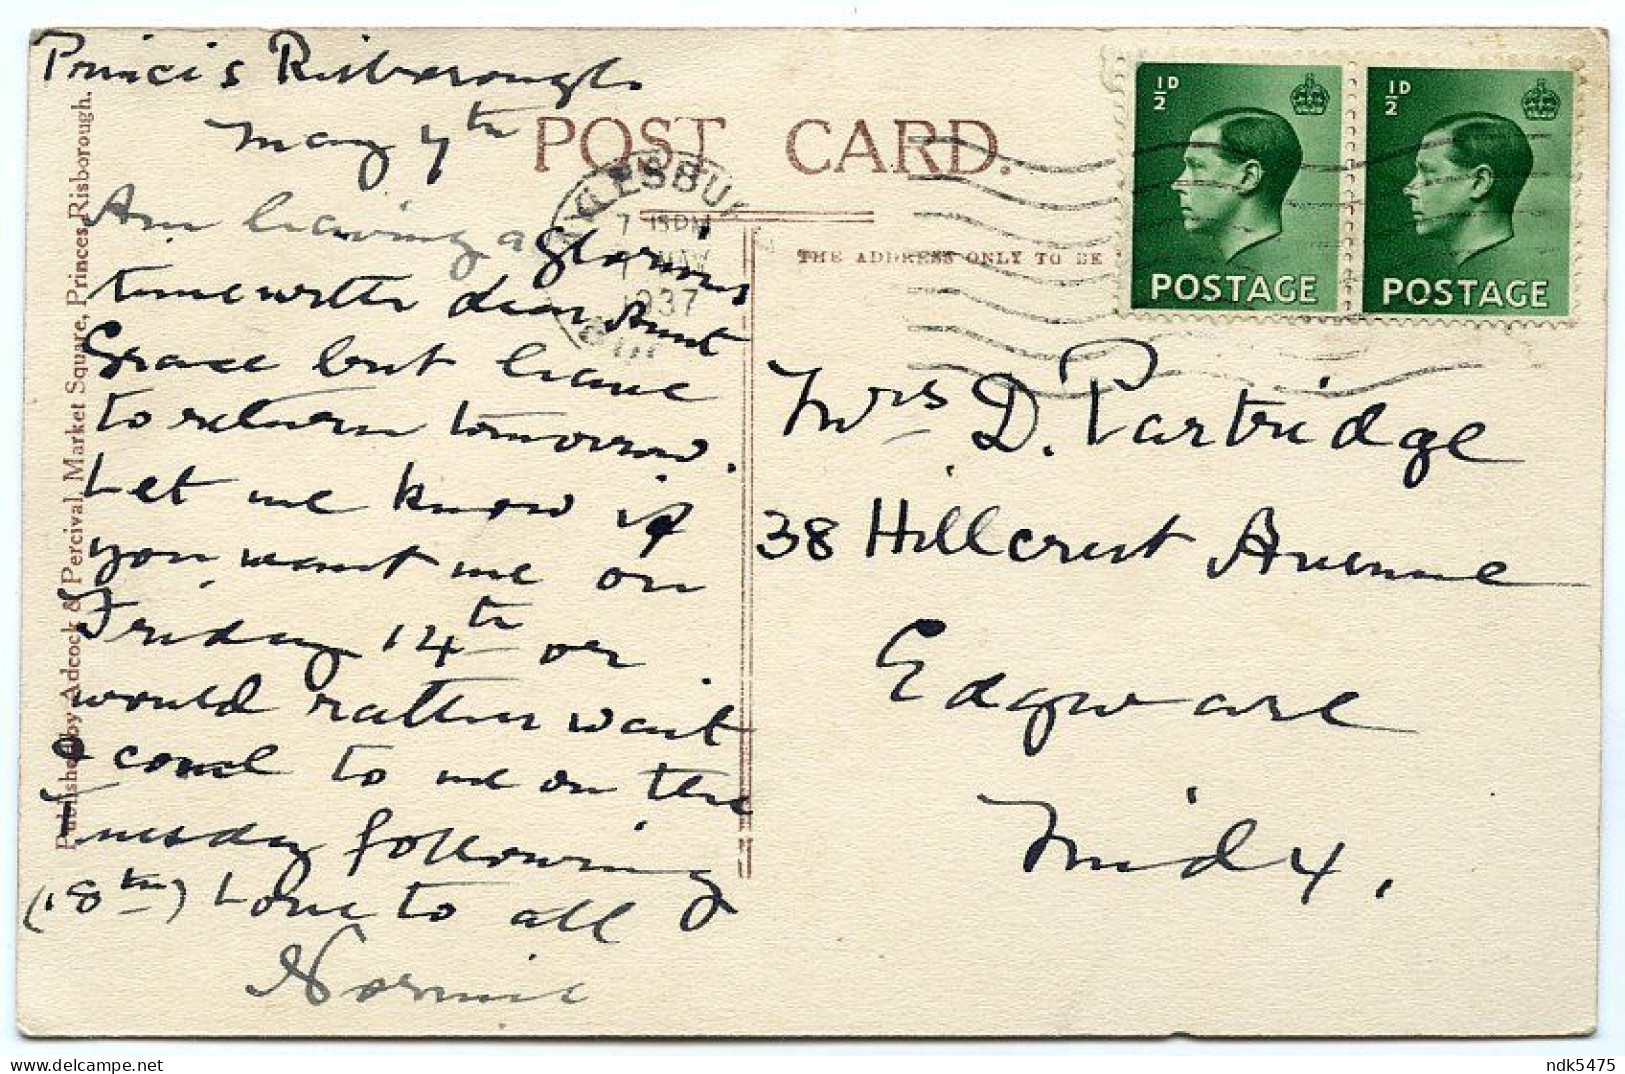 Princis Risborough
May 7th
Am having a glorious
time with dear Aunt
Grace but leave
to return tomorrow.
Let me know if
you want me on
Friday 14th or
would rather wait
& come to me on the
Tuesday following
(18th) Love to all
Normie
Published by Adcock & Percival, Market Square, Princes Risborough.
POST CARD.
THE ADDRESS ONLY TO BE
AYLESBU
7 15 PM
7 MAY
1937
½D
POSTAGE
½D
POSTAGE
Mrs D. Partridge
38 Hillcrest Avenue
Edgware
Midx.
ndk5475